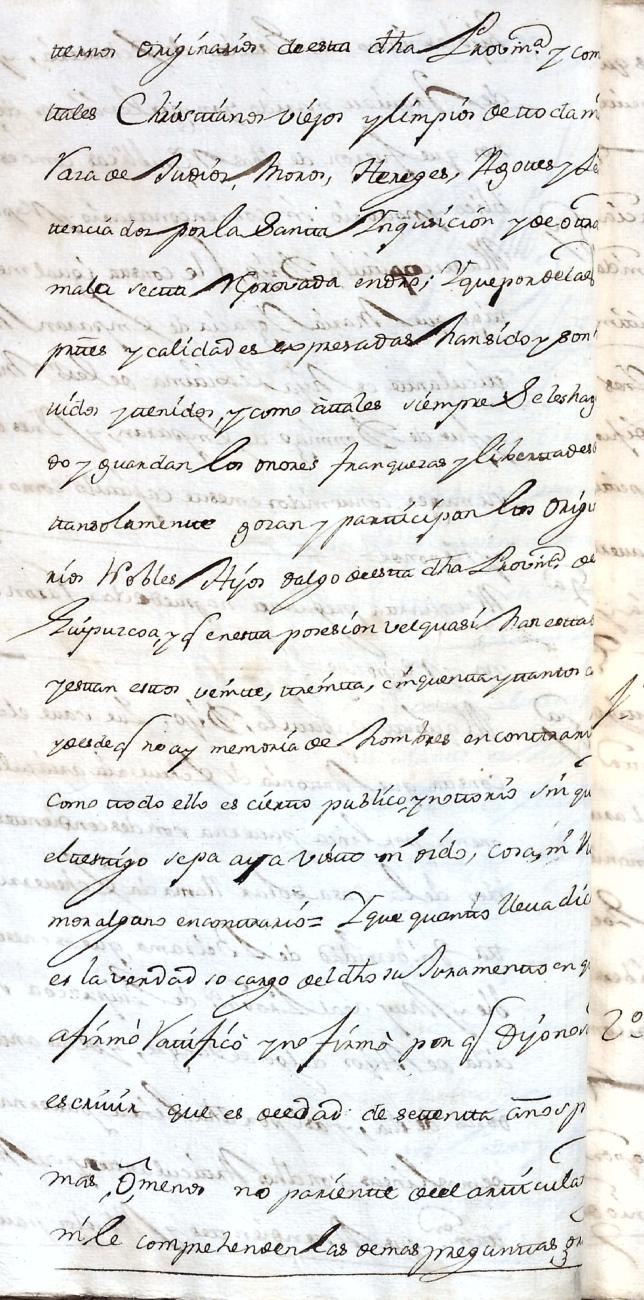 ternos originarios de esta dha Provinª y com
tales Christianos viejos y limpios de toda m
Raza de Judios, Moros, Hereges, Agotes y Pe
tenciados por la Santa Inquisición y de otra
mala secta Reprovada en dro; Y que por de las
prtes y calidades expresadas han sido y son
tidos y tenidos, y como átales siempre Se les ha
do y guardan los onores franquezas y libertades
tan solamente gozan y participan los Origi
rios Nobles Hijos dalgo de esta dha Provinª de
Guipuzcoa, y q en esta posesión vel quasi han esta
y estan estos veinte, treinta, cinquenta y tantos a
y desde q no ay memoria de hombres en contrari
Como todo ello es cierto publico, y notorio sin q
el testigo sepa aya visto ni oido, cosa, ni R
mor alguno en contrario = Y que quanto lleva dic
es la verdad so cargo del dho su Juramento en q
afirmó Ratificó y no firmó por q Dijo no
escriuir que es de edad de setenta años p
mas, ó, menos no pariente del articula
ni le comprehenden las demas preguntas
2º